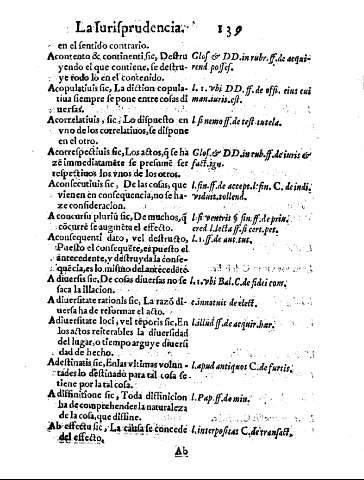 La Iurisprudencia. 139
en el sentido contrario.
Acontento & continenti sic, Destru Glos. & DD. in rubr. ff. de acqui
yendo el que contiene, se destru- rend posses.
ye todo lo en el contenido.
Acopulatiuis sic, La diction copula l. 1. vbi DD. ff. de offi. eius cui
tiua siempre se pone entre cosas di man. iuris. est.
uersas.
Acorrelatiuis, sic, Lo dispuesto en l. si nemo ff. de test. tutela.
vno de los correlatiuos, se dispone
en el otro.
Acorrespectiuis sic, Los actos, q̃ se ha Glos. & DD. in rub. ff. de iuris &
zẽ immediatamẽte se presumẽ ser fact. ign.
respectiuos los vnos de los otros.
Aconsecutiuis sic, De las cosas, que l. fin. ff. de accept. l. fin. C. de indi.
vienen en consequencia, no se ha- viduit. tollend.
ze consideracion.
A concursu pluriũ sic, De muchos, q̃ l. si ventris § fin. ff. de prin.
cõcurrẽ se augmẽta el effecto. cred. l. ecta ff. si cert. pet.
Aconsequenti dato, vel destructo, l. 1. ff. de aut. tut.
Puesto el consequẽte, es puesto el
antecedente, y destruyda la conse-
quẽcia, es lo mismo del antecedẽte
A diuersis sic, De cosas diuersas no se l. 1. vbi Bal. C. de fidei com.
saca la illacion.
A diuersitate rationis sic, La razõ di- c. innotuit de elect.
uersa ha de reformar el acto.
A diuersitate loci, vel tẽporis sic, En l. illud ff. de acquir. hær.
los actos reiterables la diuersidad
del lugar, o tiempo arguye diuersi
dad de hecho.
A destinatis sic, En las vltimas volun- l. apud antiquos C. de furtis.
tades lo destinado para tal cosa se
tiene por la tal cosa.
A diffinitione sic, Toda diffinicion l. Pap. ff. de min.
ha de comprehender la naturaleza
de la cosa, que diffine.
Ab effectu sic, La causa se concede l. interpositas C. de transact.
del effecto.
Ab